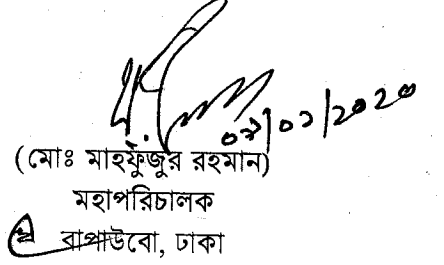 ০৯/০১/২০২০
(মোঃ মাহফুজুর রহমান)
মহাপরিচালক
বাপাউবো, ঢাকা